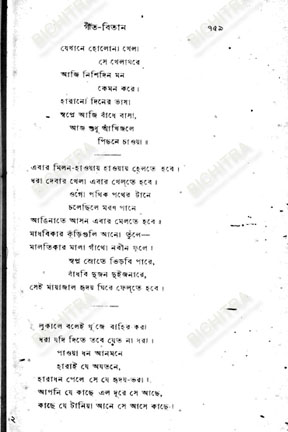 গীত-বিতান ৭৫৯
যেখানে হোলোনা খেলা
সে খেলাঘরে
আজি নিশিদিন মন
কেমন করে।
হারানো দিনের ভাষা
স্বপ্নে আজি বাঁধে বাসা,
আজ শুধু আঁখিজলে
পিছনে চাওয়া॥
এবার মিলন-হাওয়ায় হাওয়ায় হেলতে হবে।
ধরা দেবার খেলা এবার খেলতে হবে।
ওগো পথিক পথের টানে
চলেছিলে মরণ পানে
আঙিনাতে আসন এবার মেলতে হবে॥
মাধবিকার কুঁড়িগুলি আনো তুলে—
মালতিকার মালা গাঁথো নবীন ফুলে।
স্বপ্ন স্রোতে ভিড়বি পারে,
বাঁধবি দুজন দুইজনারে,
সেই মায়াজাল হৃদয় ঘিরে ফেলতে হবে॥
লুকালে বলেই খুঁজে বাহির করা
ধরা যদি দিতে তবে যেত না ধরা।
পাওয়া ধন আনমনে
হারাই যে অযতনে,
হারাধন পেলে সে যে হৃদয়-ভরা।
আপনি যে কাছে এল দূরে সে আছে,
কাছে যে টানিয়া আনে সে আসে কাছে।
BICHITRA